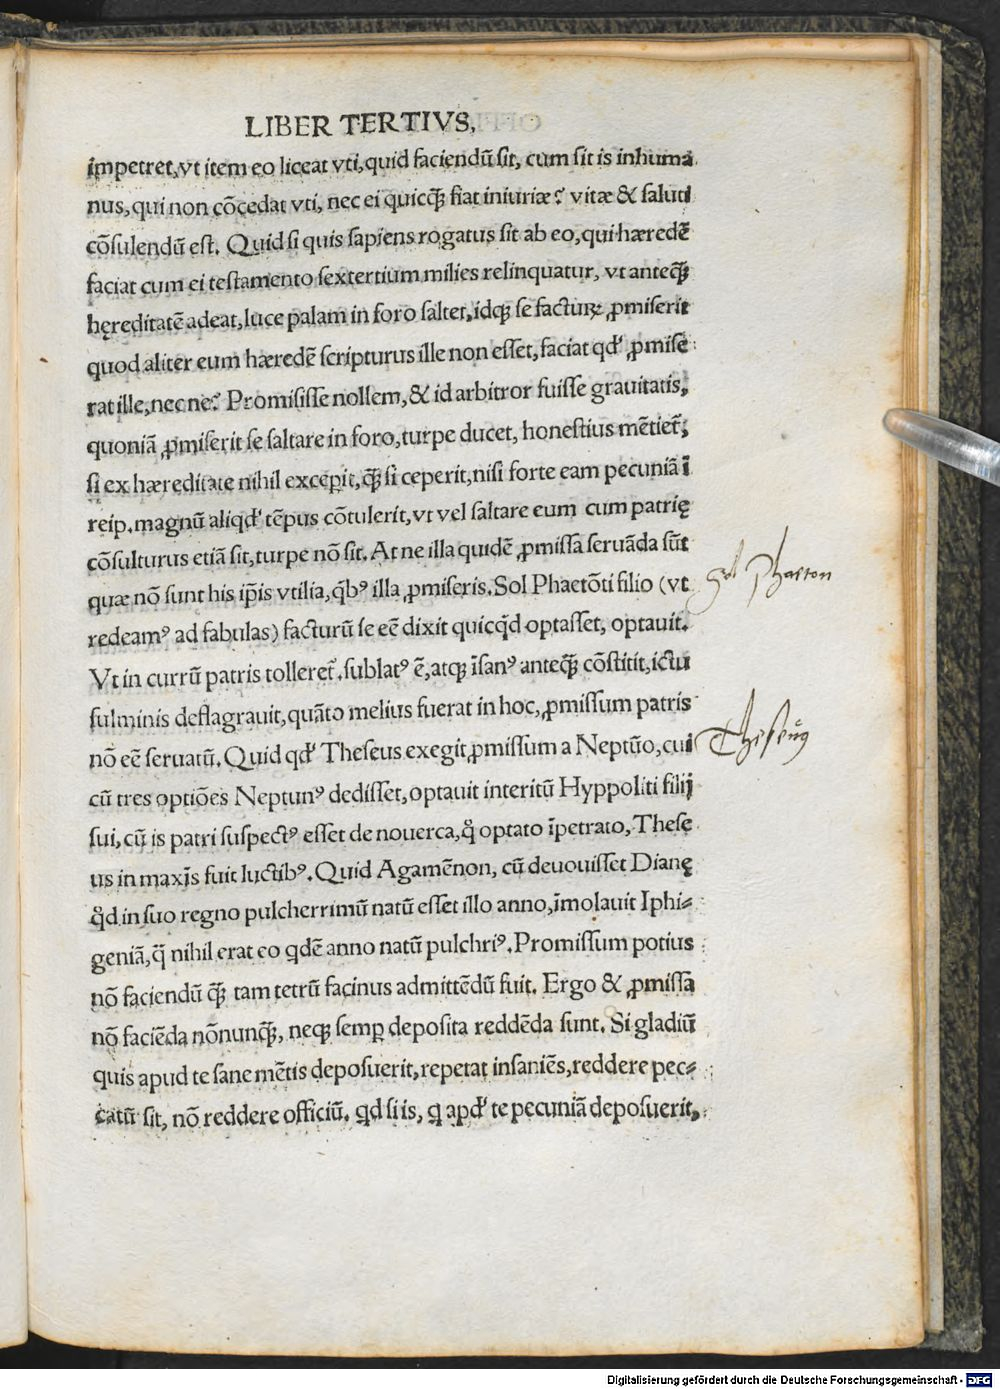 LIBER TERTIVS,
impetret, vt item eo liceat vti, quid faciendū sit, cum sit is inhuma
nus, qui non cōcedat vti, nec ei quicꝗ̄ fiat iniuriæ? vitæ & saluti
cōsulendū est. Quid si quis sapiens rogatus sit ab eo, qui hæredē
faciat cum ei testamento sextertium milies relinquatur, vt anteꝗ̄
hęreditatē adeat, luce palam in foro saltet, idqꝫ se facturꝝ ꝓmiserit
quod aliter eum hæredē scripturus ille non esset, faciat qd' ꝓmise
rat ille, nec ne? Promisisse nollem, & id arbitror fuisse grauitatis,
quoniā ꝓmiserit se saltare in foro, turpe ducet, honestius mētiet̄,
si ex hæreditate nihil exceperit, ꝗ̄ si ceperit, nisi forte eam pecuniā ī
reip. magnū aliqd' tēpus cōtulerit, vt vel saltare eum cum patrię
cōsulturus etiā sit, turpe nō sit. At ne illa quidē ꝓmissa seruāda sūt
quæ nō sunt his ip̄is vtilia, qͥbꝰ illa ꝓmiseris. Sol Phaetōti filio (vt
redeamꝰ ad fabulas) facturū se eē dixit quicqͥd optasset, optauit.
Vt in currū patris tolleret̄. sublatꝰ ē, atqꝫ īsanꝰ anteꝗ̄ cōstitit, ictu
fulminis deflagrauit, quāto melius fuerat in hoc, ꝓmissum patris
nō eē seruatū. Quid qd' Theseus exegit ꝓmissum a Neptūo, cui
cū tres optiōes Neptunꝰ dedisset, optauit interitū Hyppoliti filij
sui, cū is patri suspectꝰ esset de nouerca, qͦ optato īpetrato, Thesę
us in maxīs fuit luctibꝰ. Quid Agamēnon, cū deuouisset Dianę
qͦd in suo regno pulcherrimū natū esset illo anno, īmolauit Iphi⸗
geniā, q̄ nihil erat eo qdē anno natū pulchriꝰ. Promissum potius
nō faciendū ꝗ̄ tam tetrū facinus admittēdū fuit. Ergo & ꝓmissa
nō faciēda nōnunꝗ̄, neqꝫ semꝑ deposita reddēda sunt. Si gladiū
quis apud te sane mētis deposuerit, repetat insaniēs, reddere pec⸗
catū sit, nō reddere officiū. qd si is, q apd' te pecuniā deposuerit,
Sol Phaeton
Theseus
Digitalisierung gefördert durch die Deutsche Forschungsgemeinschaft - DFG